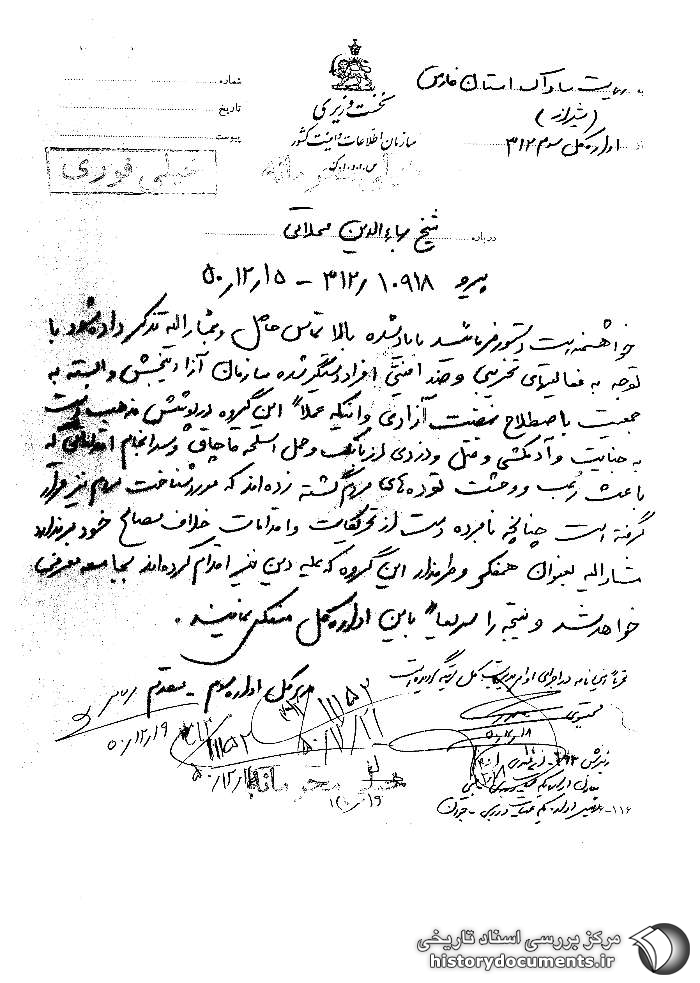 به ریاست ساواک استان فارس
(شیراز)
از اداره کل سوم ۳۱۲
نخست وزیری
سازمان اطلاعات و امنیت کشور
س.ا.و.ا.ک
شماره
تاریخ
پیوست
خیلی فوری
خیلی محرمانه
درباره شیخ بهاءالدین محلاتی
پیرو ۳۱۲/۱۰۹۱۸ - ۵۰/۱۲/۱۵
خواهشمند است دستور فرمائید با یاد شده بالا تماس حاصل و بمشارالیه تذکر داده شود با
توجه به فعالیتهای تخریبی و ضد امنیتی افراد دستگیر شده سازمان آزادیبخش وابسته به
جمعیت باصطلاح نهضت آزادی و اینکه عملاً این گروه در پوشش مذهب دست
به جنایت و آدمکشی و قتل و دزدی از بانک و حمل اسلحه قاچاق و سرانجام اقداماتی که
باعث رعب و وحشت توده‌های مردم گشته زده‌اند که مورد شناخت مردم نیز قرار
گرفته است چنانچه نامبرده دست از تحریکات و اقدامات خلاف مصالح خود برندارد
مشارالیه بعنوان همفکر و طرفدار این گروه که علیه دین نیز اقدام کرده‌اند بجامعه معرفی
خواهد شد و نتیجه را سریعاً باین اداره کل منعکس نمایند.
مدیر کل اداره سوم - مقدم
۵۰/۱۲/۱۹
۳۱۲/۱۱۱۵۲
۵۰/۱۲/۲۱
۱۱۱۵۲
خیلی محرمانه
مرکز بررسی اسناد تاریخی
historydocuments.ir